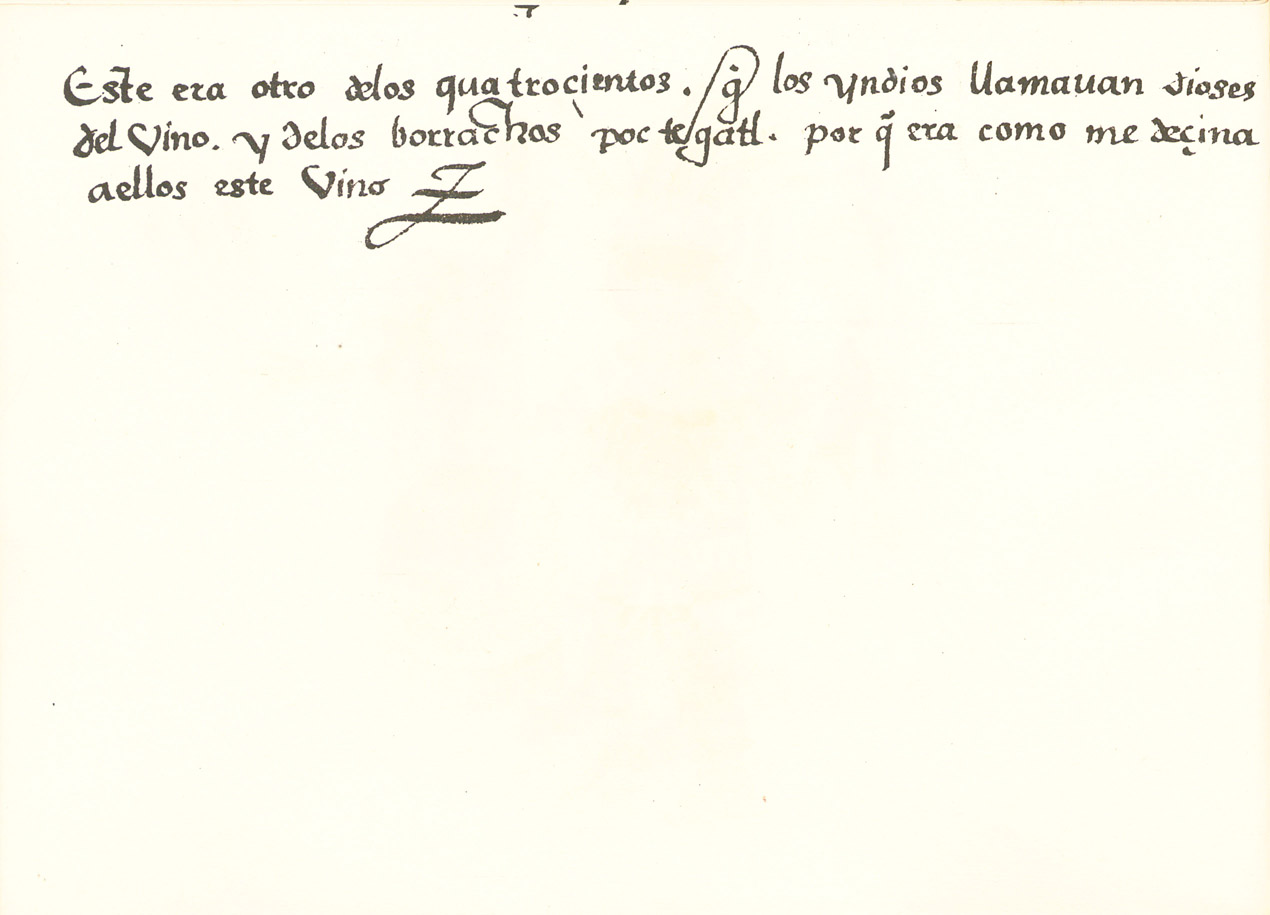 Este era otro delos quatrocientos . q̃ los yndios llamauan dioses
del Vino. y delos borrachos poc teçgatl. por q̃ era como me deçina
aellos este Vino